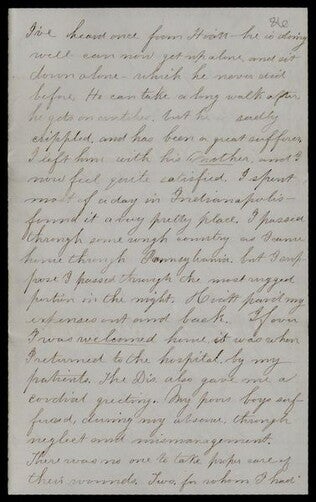 86
I've heard once from Hiatt - he is doing
well can now get up alone, and sit
down alone - which he never did
before. He can take a long walk after
he gets on crutches, but he sadly
crippled, and has been a great sufferer.
I left him with his Mother, and I
now feel quite satisfied. I spent
most of a day in Indianapolis -
found it a very pretty place. I passed
through some rough country as I came
home through Pennsylvania. but I sup-
pose I passed through the most rugged
portion in the night. Hiatt paid my
expenses out and back. If ever
I was welcomed home, it was when
I returned to the hospital, by my
patients. The Drs also gave me a
cordial greeting. My poor boys suf-
fered, during my absence, through
neglect and mismanagement.
There was no one to take proper care of
their wounds. Two, for whom I had